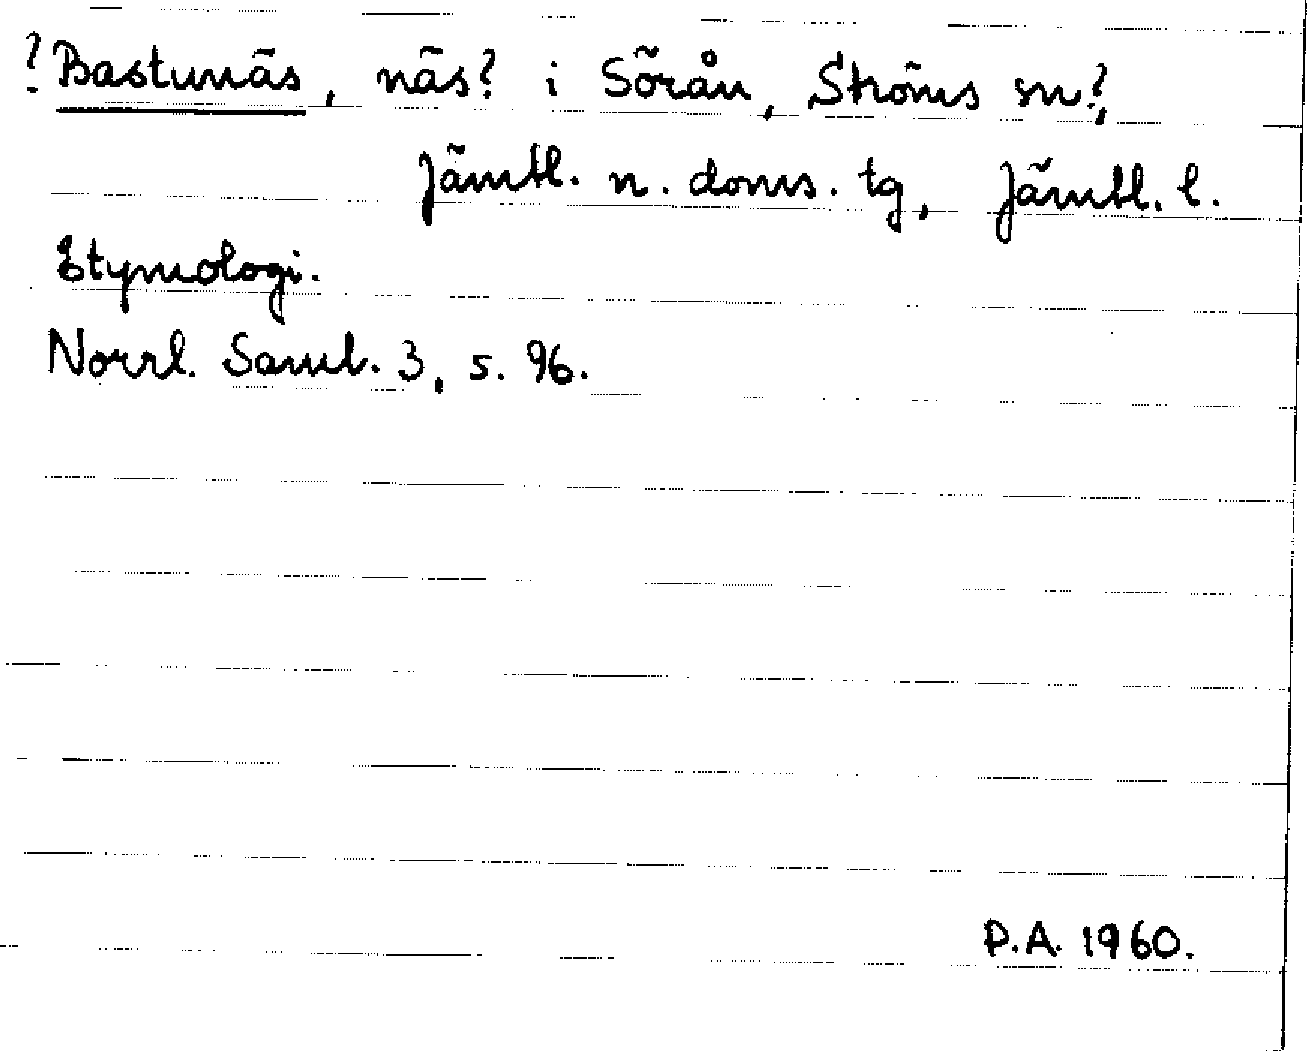 ? Bastunäs, näs? i Sörån, Ströms sn?,
Jämtl. n. doms. tg, Jämtl. l.
Etymologi.
Norrl. Saml. 3, s. 96.
P.A. 1960.